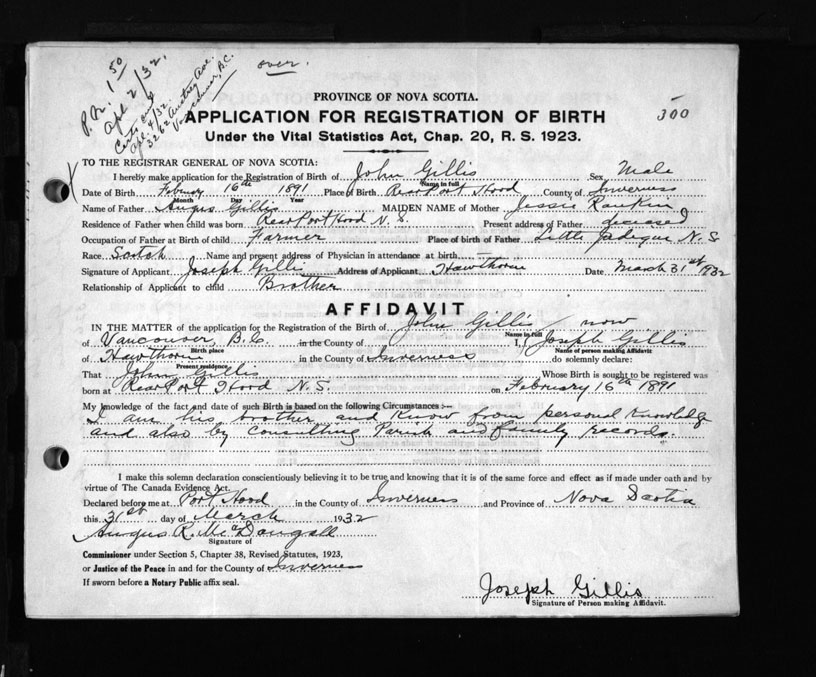 P.N. 1 50
Apl 2/32.
Certs only
Apl. 4/32.
3262 Ave.
Vancouver, B.C.
over.
300
PROVINCE OF NOVA SCOTIA.
APPLICATION FOR REGISTRATION OF BIRTH
Under the Vital Statistics Act, Chap. 20, R. S. 1923.
TO THE REGISTRAR GENERAL OF NOVA SCOTIA:
I hereby make application for the Registration of Birth of John Gillis Sex Male
Name in full
Date of Birth February 16th 1891 Place of Birth Rear Port Hood County of Inverness
Month Day Year
Name of Father Angus Gillis MAIDEN NAME of Mother Jessie Rankin
Residence of Father when child was born Rear Port Hood N.S. Present address of Father deceased
Occupation of Father at Birth of child Farmer Place of birth of Father Little Judique N.S
Race Scotch Name and present address of Physician in attendance at birth —
Signature of Applicant Joseph Gillis Address of Applicant Hawthorne Date March 31st 1932
Relationship of Applicant to child Brother
AFFIDAVIT
IN THE MATTER of the application for the Registration of the Birth of John Gillis now
Name in full
of Vancouver, B.C. in the County of I, Joseph Gillis
Birth place Name of person making Affidavit
of Hawthorne in the County of Inverness do solemnly declare:
Present residence
That John Gillis Whose Birth is sought to be registered was
born at Rear Port Hood N.S. on February 16th 1891
My knowledge of the fact and date of such Birth is based on the following Circumstances:—
I am his brother and know from personal knowledge
and also by consulting Parish and family records.
I make this solemn declaration conscientiously believing it to be true and knowing that it is of the same force and effect as if made under oath and by
virtue of The Canada Evidence Act.
Declared before me at Port Hood in the County of Inverness and Province of Nova Scotia
this 31st day of March 1932
Angus R. McDougall
Signature of
Commissioner under Section 5, Chapter 38, Revised Statutes, 1923,
or Justice of the Peace in and for the County of Inverness
If sworn before a Notary Public affix seal.
Joseph Gillis
Signature of Person making Affidavit.